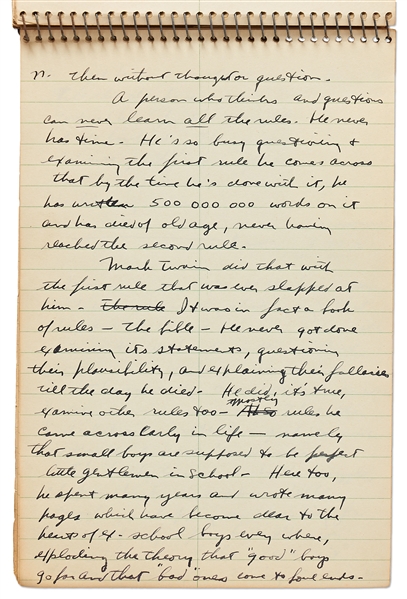 n. them without thought or question.
A person who thinks and questions
can never learn all the rules. He never
has time. He's so busy questioning &
examining the first rule he comes across
that by the time he's done with it, he
has written 500 000 000 words on it
and has died of old age, never having
reached the second rule.
Mark Twain did that with
the first rule that was ever slapped at
him. The rule It was in fact a book
of rules - the bible - He never got done
examining its statements, questioning
their plausibility, and explaining their fallacies
till the day he died. He did, it's true,
examine other rules too - Also mostly rules he
came across early in life - namely
that small boys are supposed to be perfect
little gentlemen in school - Here too,
he spent many years and wrote many
pages which have become dear to the
hearts of ex-school boys every where,
exploding the theory that "good" boys
go far and that "bad" ones come to foul ends.